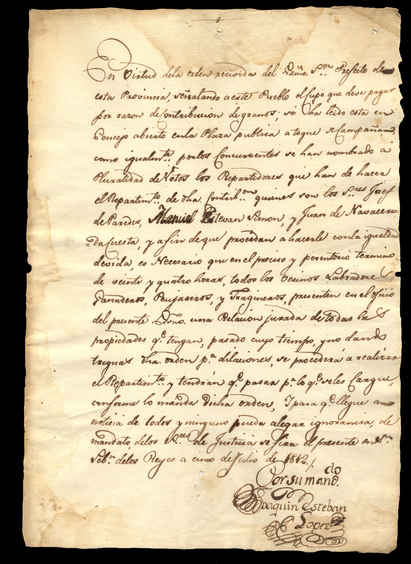 Por Virtud dela orden recivida del Exmo Sor Prefecto de
esta Provincia, señalando a este Pueblo el cupo que deve pagar
por razon de Contribucion de granos, se ha leido esta en
Concejo abierto en la Plaza publica a toque de Campana
como igualmte por los Concurrentes se han nombrado a
Pluralidad de Votos los Repartidores que han de hacer
el Repartimto de dha Contribon quienes son los Sres Josef
de Paredes, Manuel Estevan Simon, y Juan de Navacerra
da Cuesta, y a fin de que procedan a hacerle con la igualdad
devida, es Necesario que en el preciso y perentorio termino
de veinte y quatro horas, todos los vecinos Labradores
Ganaderos, Pujareros, y Tragineros, presenten en el oficio
del presente Esno una Relacion jurada de todas las
propiedades qe tengan, pasado cuyo tiempo, y no dando
treguas dha orden pa dilaciones, se procederá a realizar
el Repartimto y tendrán qe pasar pr lo qe se les Cargue,
conforme lo manda dicha orden, Y para qe llegue a no
noticia de todos y ninguno pueda alegar ignorancia, de
mandato delos Sres de Justicia se fixa el presente en Sn
Sebn delos Reyes a cinco de Julio de 1812
Por su mando
Joaquin Esteban
Lopez